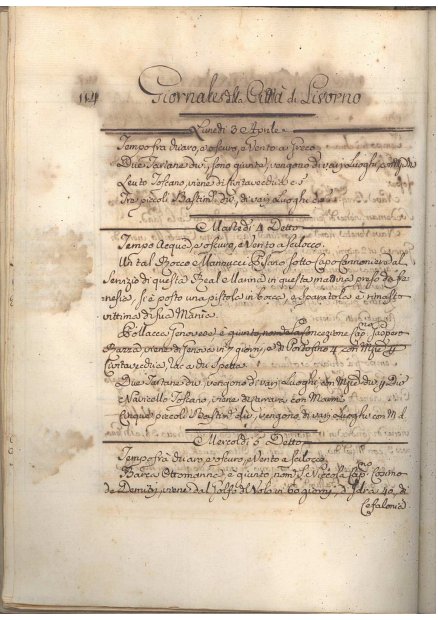 114 Giornale della Città di Livorno
Lunedì 3 Aprile
Tempo fra chiaro, e oscuro, e Vento a Greco
Due Tartane div.e sono giunte, vengono di varj Luoghi, con
Leuto Toscano, viene di Civitavecchia c. s.
Tre piccoli Bastim.ti div.i di varj Luoghi c. s.
Martedì 4 Detto
Tempo Acqua, e oscuro, e Vento a Scilocco
Un tal Rocco Mannucci Pisano sotto Capo Cannoniere al
Servizio di questa Real Marina in questa mattina preso da fre-
nesia si è posto una pistola in bocca, e sparatola è rimasto
vittima di sua Mania.
Pollacca Genovese è giunto, nom.a la Concezione Cap.no
viene di Genova in 7 giorni, e di Portofino 4, con
Civitavecchia, Lac a du Spetta
Due Tartane div.e vengono di varj Luoghi con div.e, Div.o
Navicello Toscano, viene di Carrara, con Marmi
Cinque piccoli Bastim.ti div.i vengono di varj Luoghi con M. d.
Mercoldì 5 Detto
Tempo fra chiaro, e oscuro, e Vento a Scilocco
Barca Ottomanna è giunto nom.a S. Niccola Cap.no
de Dimitri, viene dal Golfo di Volo in 60 giorni, d'Idra 40, di
Cefalonia